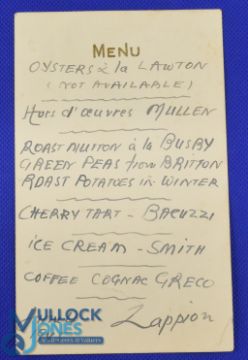 MENU
OYSTERS à la LAWTON
(NOT AVAILABLE)
Hors d'œuvres MULLEN
ROAST MUTTON à la BUSBY
GREEN PEAS from BRITTON
ROAST POTATOES IN WINTER
CHERRY TART - BACUZZI
ICE CREAM - SMITH
COFFEE COGNAC GRECO
Zappion
MULLOCK
JONES